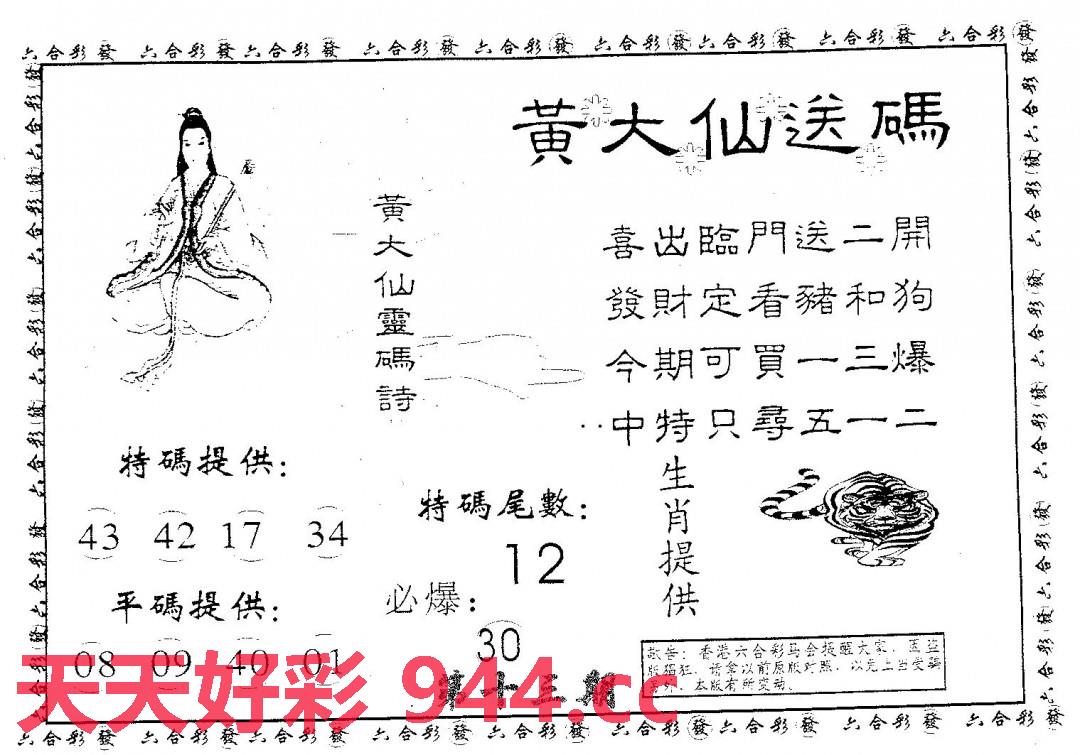 六合彩發 六合彩發六合彩發 六合彩發 六合彩發 六合彩發六合彩發 六合彩發 六合彩發
黃大仙送碼
黃大仙靈碼詩
喜出臨門送二開
發財定看豬和狗
今期可買一三爆
中特只尋五一二
特碼提供：
43 42 17 34
平碼提供：
08 09 40 01
特碼尾數：
12
必爆：
30
生肖提供
敬告：香港六合彩马会提醒大家，因盗
版猖狂，请拿以前原版对照，以免上当受骗
本版有所变动。
第十三期
天天好彩 944.cc
六合彩發 六合彩發六合彩發 六合彩發 六合彩發 六合彩發六合彩發 六合彩發 六合彩發